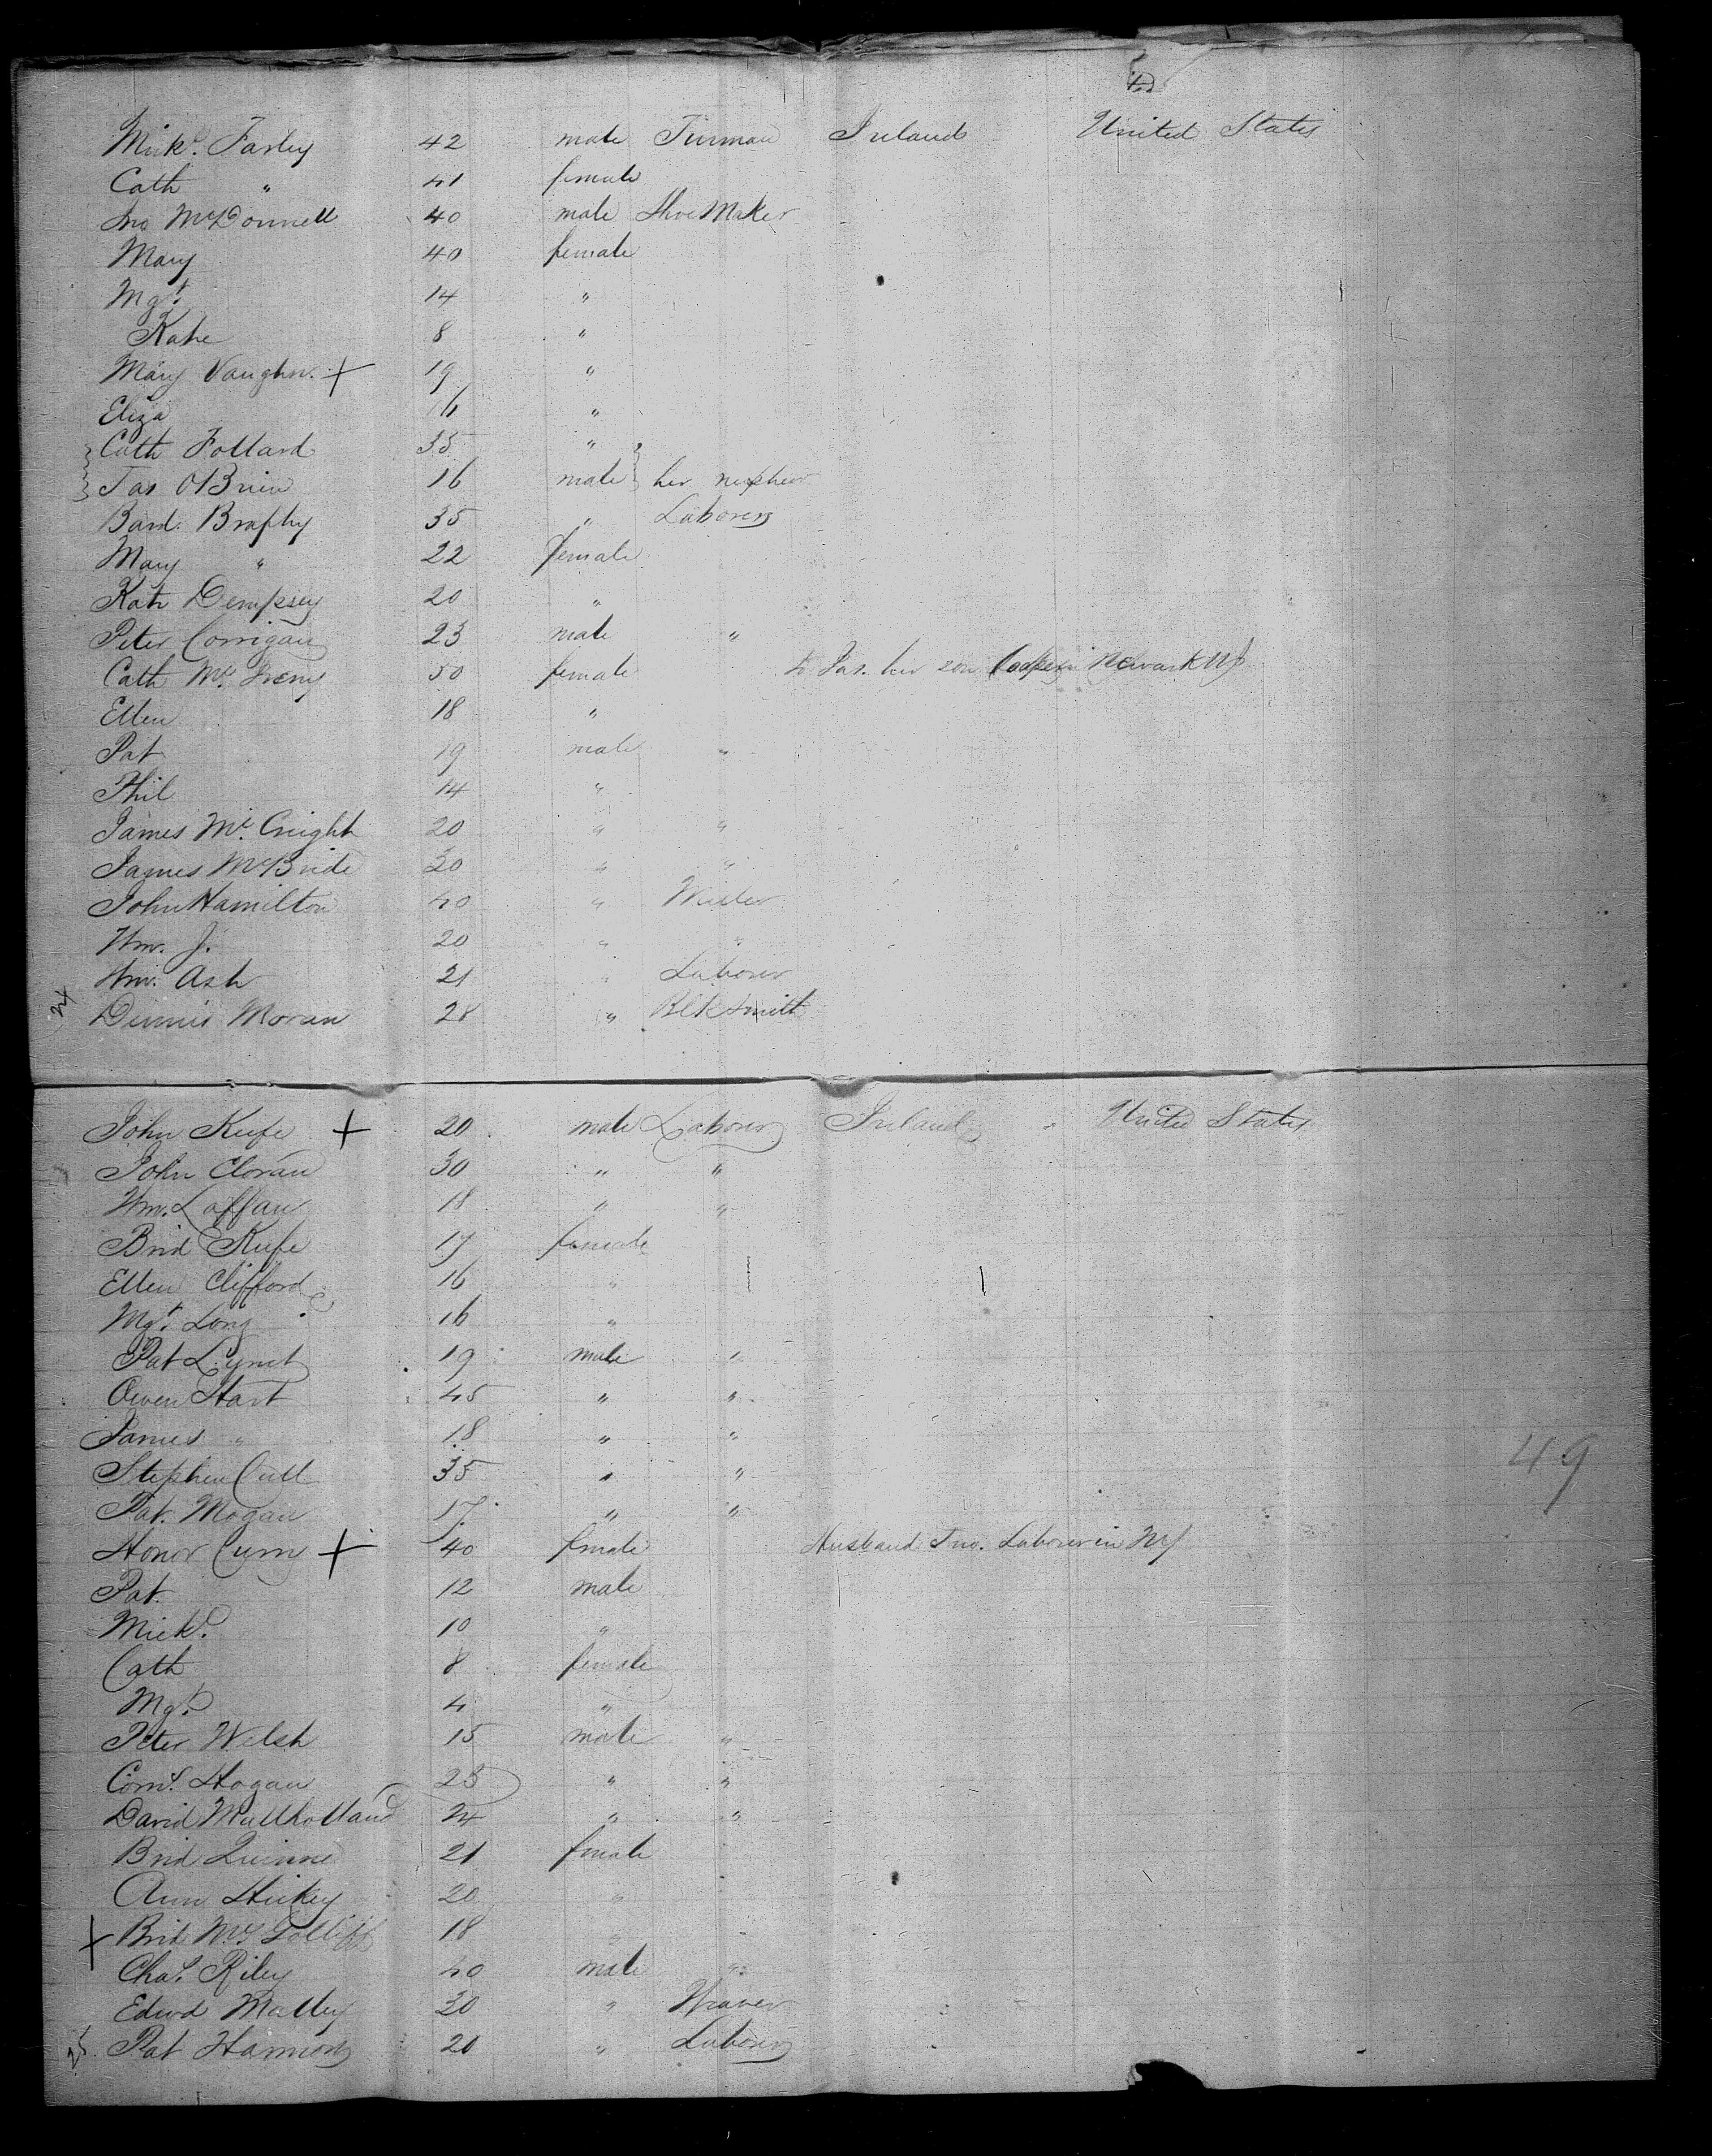 Mick. Farley 42 male Tinman Ireland United States
Cath " 41 female
Jno McDonnell 40 male Shoe Maker
Mary 40 female
Mgt. 14 "
Kate 8 "
Mary Vaughn. + 19 "
Eliza 16 "
Cath Follard 35 "
Jas O'Brien 16 male her nephew
Bard. Brophy 35 " Laborer
Mary " 22 female
Kate Dempsey 20 "
Peter Corrigan 23 male "
Cath Mc 50 female to Jas. her son Newark NJ
Ellen 18 "
Pat 19 male "
Phil 14 "
James Mc. Cnight 20 " "
James McBride 30 " "
John Hamilton 40 "
Wm. J. 20 " "
Wm. Ash 21 " Laborer
24 Dennis Moran 28 " Blksmith
John Keefe + 20 male Laborer Ireland United States
John Cloran 30 " "
Wm. Laffan 18 " "
Brid Keefe 17 female
Ellen Clifford 16 "
Mgt. Long 16 "
Pat Lynch 19 male "
Owen Hart 45 " "
James " 18 " "
Stephen Cull 35 " "
49
Pat. Mogan 17 " "
Honor Curry + 40 female Husband Jno. Laborer in NY
Pat. 12 male
Mick. 10 "
Cath 8 female
Mgt. 4 "
Peter Welsh 15 male "
Corns. Hogan 23 " "
David Mullholland 24 " "
Brid Quinne 21 female
Ann Hickey 20 "
+ Brid Mc. 18 "
Chas. Riley 40 male "
Edwd Malley 30 " Weaver
25 Pat Hannon 20 " Laborer